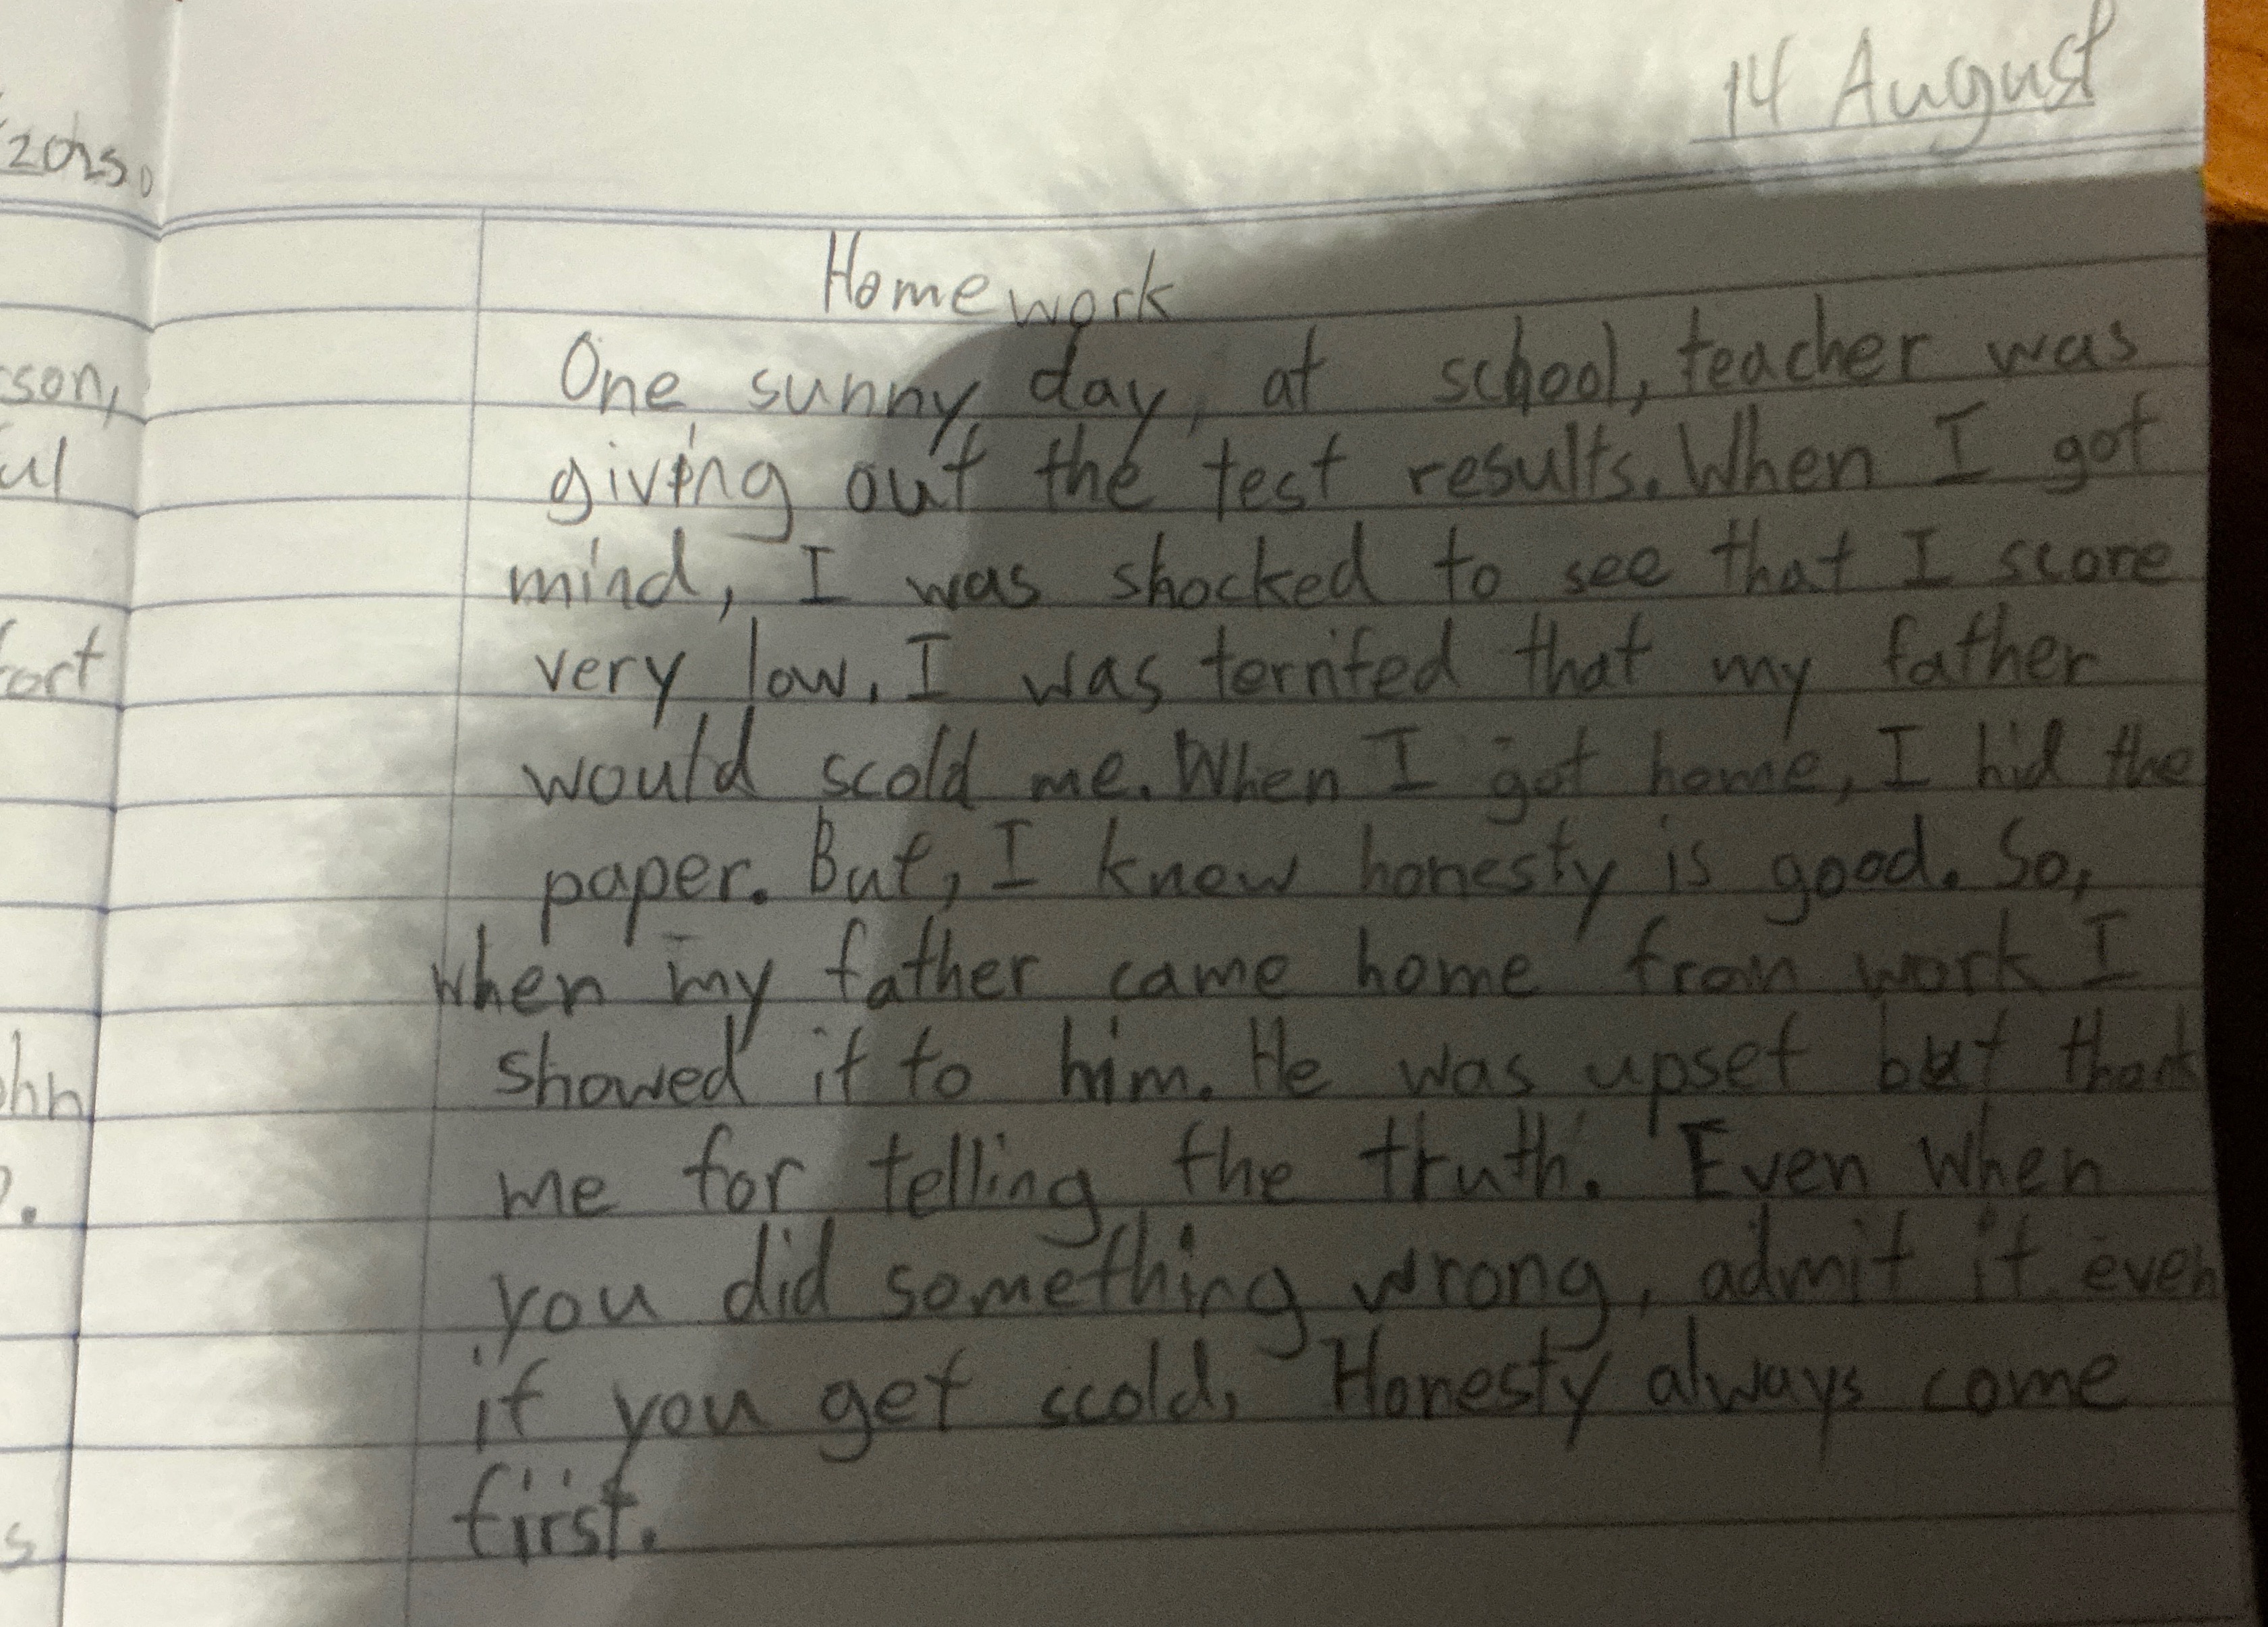 14 August
Homework
One sunny day, at school, teacher was
giving out the test results. When I got
mind, I was shocked to see that I score
very low. I was terrifed that my father
would scold me. When I got home, I hid the
paper. But, I knew honesty is good. So,
when my father came home from work I
showed it to him. He was upset but thank
me for telling the truth. Even when
you did something wrong, admit it even
if you get scold. Honesty always come
first.
son,
ul
fort
ohn
s